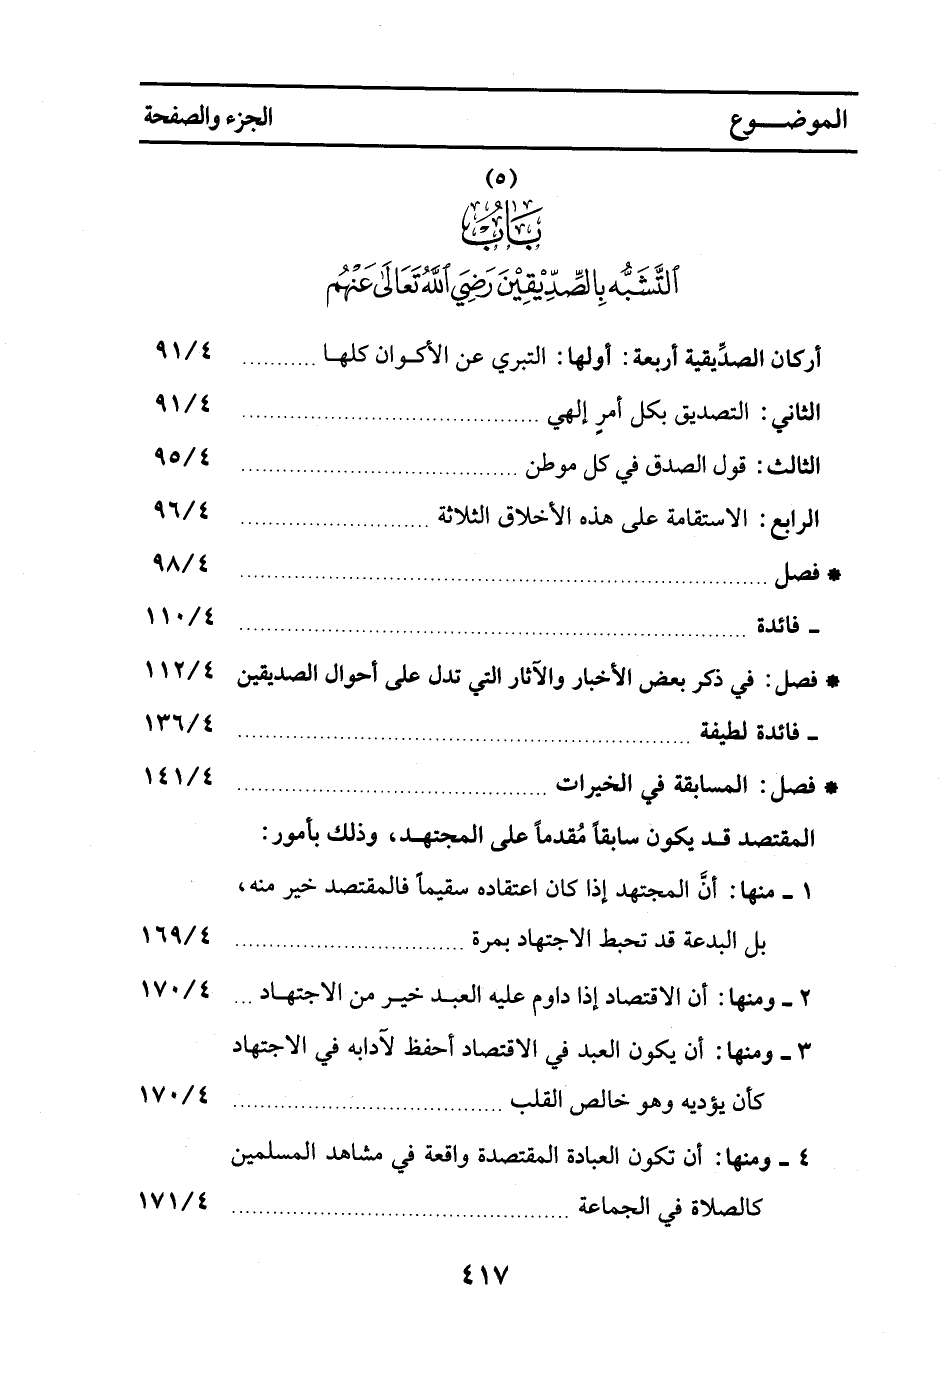 الموضـــوع الجزء والصفحة
(٥)
بَابُ
ٱلتَّشَبُّه بِالصِّدِّيْقِيْنَ رَضِيَ ٱللَّهُ تَعَالَىٰ عَنْهُم
أركان الصدِّيقية أربعة: أولها: التبري عن الأكوان كلها ........... ٩١/٤
الثاني: التصديق بكل أمرٍ إلهي ........................................ ٩١/٤
الثالث: قول الصدق في كل موطن ........................................ ٩٥/٤
الرابع: الاستقامة على هذه الأخلاق الثلاثة ........................... ٩٦/٤
* فصل ........................................................................ ٩٨/٤
ـ فائدة ........................................................................ ١١٠/٤
* فصل: في ذكر بعض الأخبار والآثار التي تدل على أحوال الصديقين ١١٢/٤
ـ فائدة لطيفة ............................................................ ١٣٦/٤
* فصل: المسابقة في الخيرات ........................................ ١٤١/٤
المقتصد قد يكون سابقاً مُقدماً على المجتهد، وذلك بأمور:
١ ـ منها: أنَّ المجتهد إذا كان اعتقاده سقيماً فالمقتصد خير منه،
بل البدعة قد تحبط الاجتهاد بمرة ................................. ١٦٩/٤
٢ ـ ومنها: أن الاقتصاد إذا داوم عليه العبد خير من الاجتهاد ... ١٧٠/٤
٣ ـ ومنها: أن يكون العبد في الاقتصاد أحفظ لآدابه في الاجتهاد
كأن يؤديه وهو خالص القلب ....................................... ١٧٠/٤
٤ ـ ومنها: أن تكون العبادة المقتصدة واقعة في مشاهد المسلمين
كالصلاة في الجماعة ................................................ ١٧١/٤
٤١٧